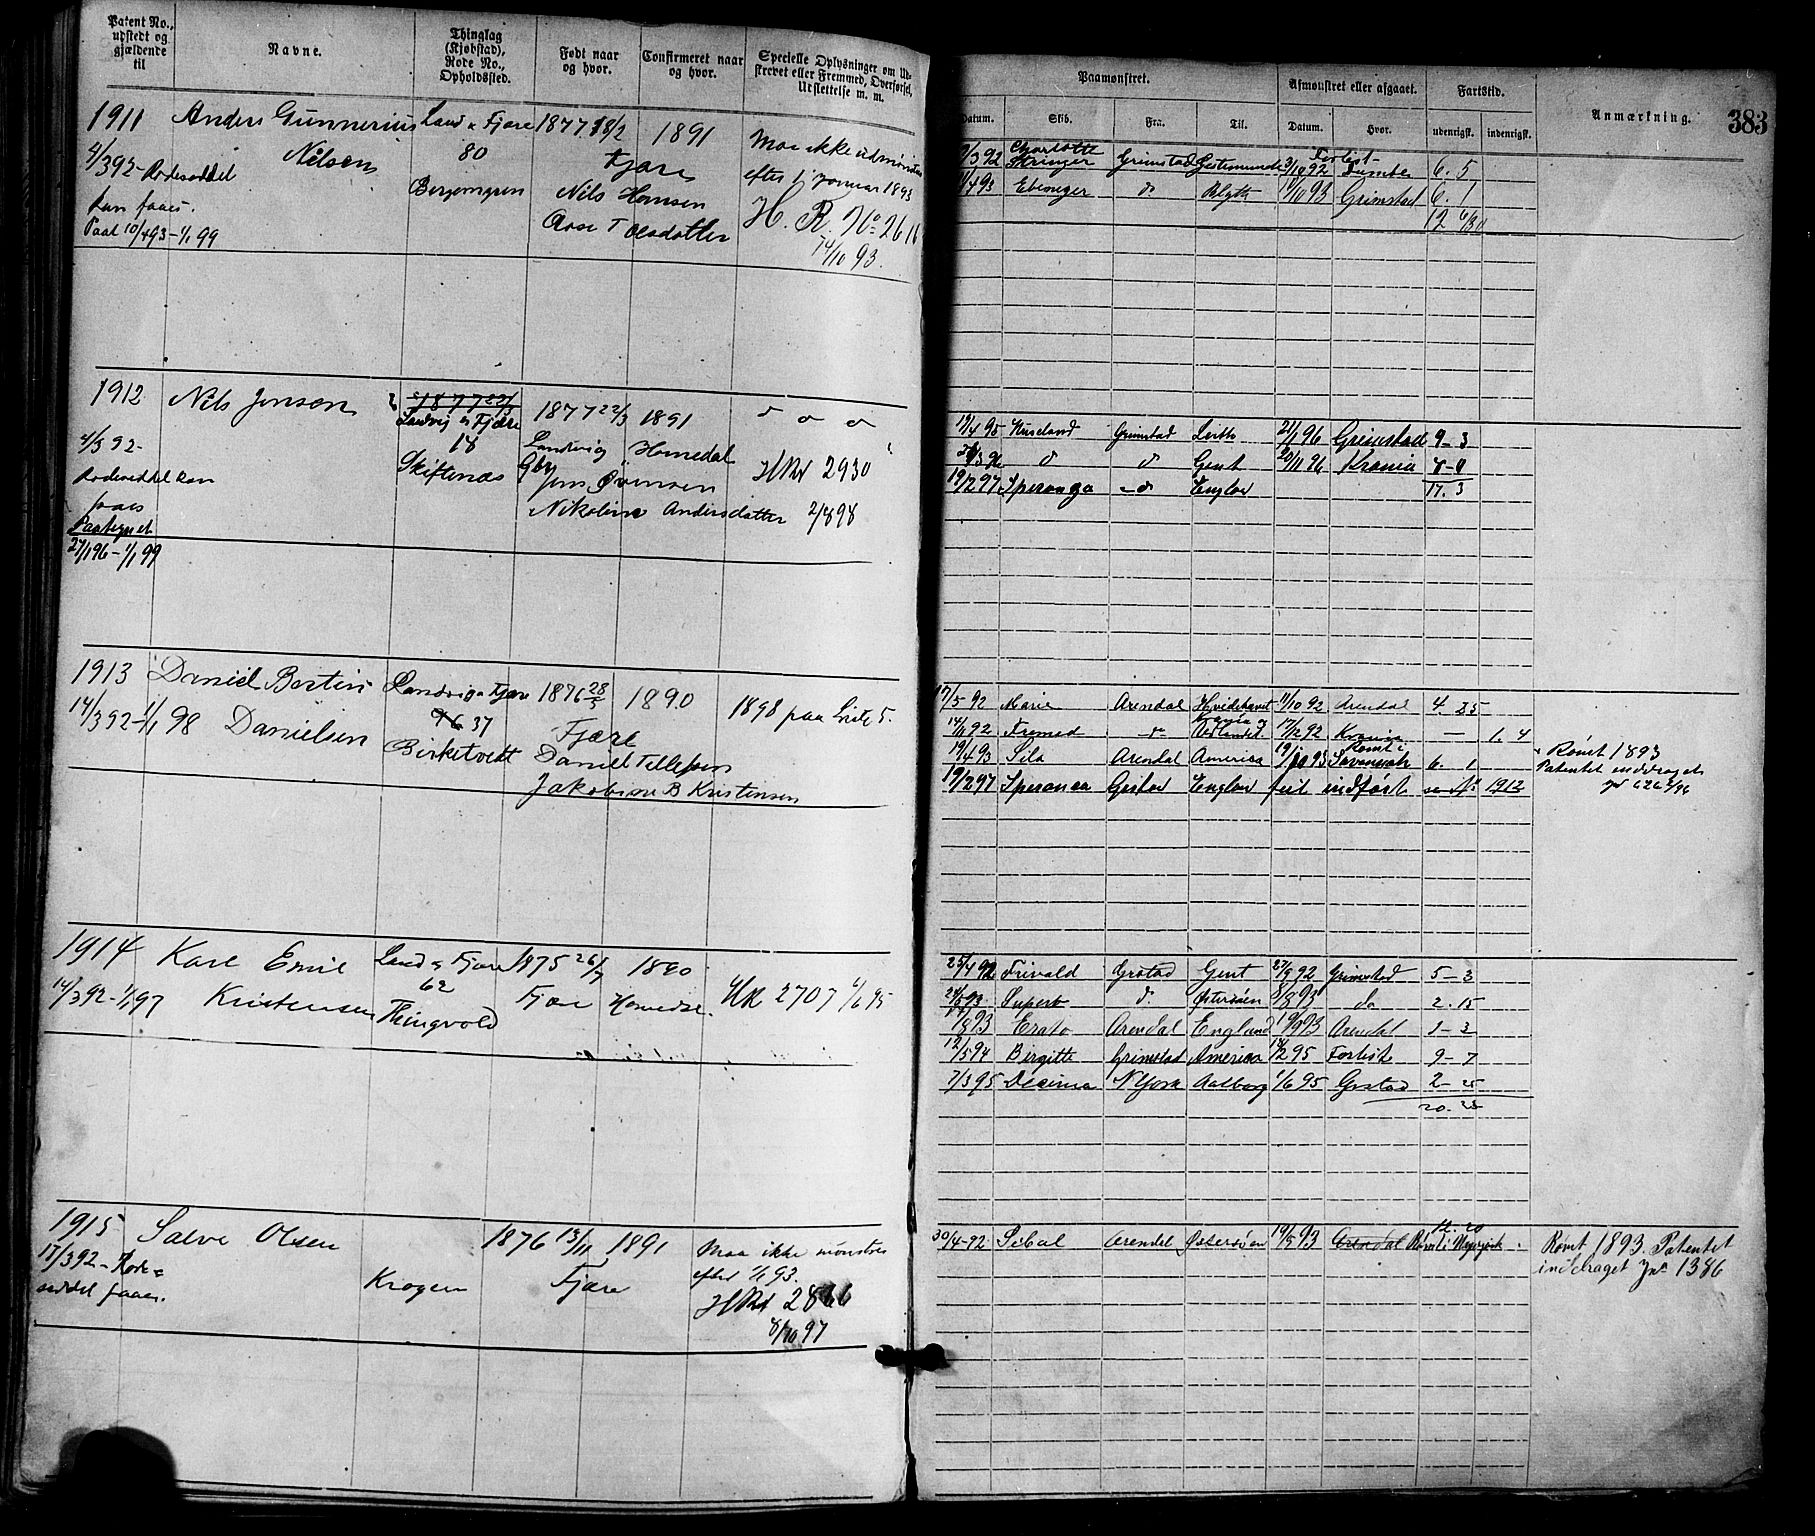 Patent No., udstedt og gjældende til
Navne.
Thinglag (Kjøbstad), Rode No., Opholdssted.
Født naar og hvor.
Confirmeret naar og hvor.
Specielle Oplysninger om Udskrevet eller Fremmed, Overførsel, Udslettelse m. m.
Paamønstret.
Afmønstret eller afgaaet.
Fartstid.
Anmærkning.
383
Datum. Skib. Fra. Til. Datum. Hvor. udenrigsk. indenrigsk.
1911 Anders Gunnerius Land & Fjære 1877 18/2 1891 Maa ikke udmønstres
4/3 92 - Rodeseddel Nilsen 80 Fjære efter 1 Januar 1893
kan faaes. Bergemyren Nils Hansen H. R. No 2616
Paat 10/4 93 - 1/1 99 Aase T Olsdatter 14/10 93.
Charlotte Forlist
9/3 92 Stringer Grimstad Gestemunde 3/10 92 6. 5
11/4 93 Ebenezer do Blyth 11/10 93 Grimstad 6. 1
12 6/30
1912 Nils Jensen 1877 22/3 1877 22/3 1891 do do do
Landvig & Fjære
4/3 92 - 18 Landvig Homedal HRd 2930
Rodeseddel kan Skiftenæs Jens
faaes Nikoline Andersdatter 2/8 98
Paategnet
27/1 96 - 1/1 99
19/4 95 Huseland Grimstad Leith 21/1 96 Grimstad 9 - 3
do do Gent 20/11 96 Krania 8 - 0
19/2 97 Speranza - do Englan 17. 3
1913 Daniel Bertin Landvig & Fjære 1876 28/5 1890 1898 paa Liste 5.
14/3 92 - 1/1 98 Danielsen 96 37 Fjære
Birketvedt Daniel Tellefsen
Jakobine B Kristensen
17/5 92 Marie Arendal Hvidehavet 11/10 92 Arendal 4. 25
14/11 92 Fremad do Krania og Østlandet 17/2 92 Krania - 1. 4
19/4 93 Sila Arendal America 19/10 93 Rømt i Savannah 6. 1
19/2 97 Speranza Gstad Englan feil indført se No 1912
Rømt 1893
Patentet inddraget
1914 Karl Emil Land & Fjære 1875 26/7 1890
14/3 92 - 1/1 97 Kristensen 62 Fjære Homedal. HR 2707 4/6 95
Thingvold
25/4 92 Frivald Grstad Gent 27/9 92 Grimstad 5 - 3
24/5 93 Superb do. Østersøen 8/8 93 do 2. 15
1/8 93 Erato Arendal England 19/9 93 Arendal 1 - 3
12/5 94 Birgitte Grimstad America 18/2 95 Forlist 9 - 7
7/3 95 Decima N York Aalborg 1/6 95 Grstad 2 - 25
20. 25
1915 Salve Olsen 1876 13/11 1891 Maa ikke mønstres
17/3 92 - Rode= Krogen Fjære efter 1/1 93.
seddel faaes. HRd 2866
8/10 97
30/4 - 92 Sibal Arendal Østersøen 19/5 93 Arendal Rømt i Newyork 12. 20
Rømt 1893. Patentet
inddraget Jn 1386